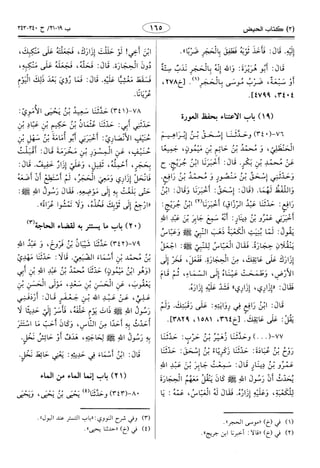 (٣) كتاب الحيض
١٦٥
ب ١٩-٢١/ ح ٣٤٠-٣٤٣
إِلَيْهِ. قَالَ: فَأَخَذَ ثَوْبَهُ فَطَفِقَ بِالْحَجَرِ ضَرْبًا».
قَالَ: أَبُو هُرَيْرَةَ: وَاللهِ إِنَّهُ بِالْحَجَرِ نَدَبٌ سِتَّةٌ
أَوْ سَبْعَةٌ، ضَرْبُ مُوسَى بِالْحَجَرِ(١). [خ٢٧٨،
٣٤٠٤، ٤٧٩٩].
(١٩) باب الاعتناء بحفظ العورة
٧٦-(٣٤٠) وَحَدَّثَنَا إِسْحَقُ بْنُ إِبْرَاهِيمَ
الْحَنْظَلِيُّ، وَ مُحَمَّدُ بْنُ حَاتِمِ بْنِ مَيْمُونٍ، جَمِيعًا
عَنْ مُحَمَّدِ بْنِ بَكْرٍ. قَالَ: أَخْبَرَنَا ابْنُ جُرَيْجٍ. ح
وَحَدَّثَنِي إِسْحَقُ بْنُ مَنْصُورٍ وَ مُحَمَّدُ بْنُ رَافِعٍ.
وَاللَّفْظُ لَهُمَا. (قَالَ: إِسْحَقُ: أَخْبَرَنَا. وَقَالَ: ابْنُ
رَافِعٍ: حَدَّثَنَا عَبْدُ الرَّزَّاقِ). أَخْبَرَنَا ابْنُ جُرَيْجٍ(٢):
أَخْبَرَنِي عَمْرُو بْنُ دِينَارٍ: أَنَّهُ سَمِعَ جَابِرَ بْنَ عَبْدِ اللهِ
يَقُولُ: لَمَّا بُنِيَتِ الْكَعْبَةُ ذَهَبَ النَّبِيُّ ﷺ وَعَبَّاسٌ
يَنْقُلَانِ حِجَارَةً. فَقَالَ الْعَبَّاسُ لِلنَّبِيِّ ﷺ: اجْعَلْ
إِزَارَكَ عَلَى عَاتِقِكَ، مِنَ الْحِجَارَةِ. فَفَعَلَ. فَخَرَّ إِلَى
الْأَرْضِ، وَطَمَحَتْ عَيْنَاهُ إِلَى السَّمَاءِ، ثُمَّ قَامَ
فَقَالَ: «إِزَارِي، إِزَارِي» فَشَدَّ عَلَيْهِ إِزَارَهُ.
قَالَ: ابْنُ رَافِعٍ فِي رِوَايَتِهِ: عَلَى رَقَبَتِكَ. وَلَمْ
يَقُلْ: عَلَى عَاتِقِكَ. [خ٣٦٤، ١٥٨٢، ٣٨٢٩].
٧٧-(٠٠٠) وَحَدَّثَنَا زُهَيْرُ بْنُ حَرْبٍ: حَدَّثَنَا
رَوْحُ بْنُ عُبَادَةَ: حَدَّثَنَا زَكَرِيَّاءُ بْنُ إِسْحَقَ: حَدَّثَنَا
عَمْرُو بْنُ دِينَارٍ قَالَ: سَمِعْتُ جَابِرَ بْنَ عَبْدِ اللهِ
يُحَدِّثُ أَنَّ رَسُولَ اللهِ ﷺ كَانَ يَنْقُلُ مَعَهُمُ الْحِجَارَةَ
لِلْكَعْبَةِ، وَعَلَيْهِ إِزَارُهُ. فَقَالَ لَهُ الْعَبَّاسُ، عَمُّهُ: يَا
(١) في (خ) «موسى الحجر».
(٢) في (خ) «قالا: أخبرنا ابن جريج».
ابْنَ أَخِي! لَوْ حَلَلْتَ إِزَارَكَ، فَجَعَلْتَهُ عَلَى مَنْكِبِكَ،
دُونَ الْحِجَارَةِ. قَالَ: فَحَلَّهُ، فَجَعَلَهُ عَلَى مَنْكِبِهِ،
فَسَقَطَ مَغْشِيًّا عَلَيْهِ. قَالَ: فَمَا رُؤِيَ بَعْدَ ذَلِكَ الْيَوْمِ
عُرْيَانًا.
٧٨-(٣٤١) حَدَّثَنَا سَعِيدُ بْنُ يَحْيَى الْأُمَوِيُّ:
حَدَّثَنِي أَبِي: حَدَّثَنَا عُثْمَانُ بْنُ حَكِيمِ بْنِ عَبَّادِ بْنِ
حُنَيْفٍ الْأَنْصَارِيُّ: أَخْبَرَنِي أَبُو أُمَامَةَ بْنُ سَهْلِ بْنِ
حُنَيْفٍ، عَنِ الْمِسْوَرِ بْنِ مَخْرَمَةَ قَالَ: أَقْبَلْتُ
بِحَجَرٍ، أَحْمِلُهُ، ثَقِيلٍ، وَعَلَيَّ إِزَارٌ خَفِيفٌ. قَالَ:
فَانْحَلَّ إِزَارِي وَمَعِيَ الْحَجَرُ. لَمْ أَسْتَطِعْ أَنْ أَضَعَهُ
حَتَّى بَلَغْتُ بِهِ إِلَى مَوْضِعِهِ. فَقَالَ رَسُولُ اللهِ ﷺ:
«ارْجِعْ إِلَى ثَوْبِكَ فَخُذْهُ، وَلَا تَمْشُوا عُرَاةً».
(٢٠) باب ما يستتر به لقضاء الحاجة(٣)
٧٩-(٣٤٢) حَدَّثَنَا شَيْبَانُ بْنُ فَرُّوخَ، وَ عَبْدُ اللهِ
بْنُ مُحَمَّدِ بْنِ أَسْمَاءَ الضُّبَعِيُّ. قَالَا: حَدَّثَنَا مَهْدِيٌّ
(وَهُوَ ابْنُ مَيْمُونٍ) حَدَّثَنَا مُحَمَّدُ بْنُ عَبْدِ اللهِ بْنِ أَبِي
يَعْقُوبَ، عَنِ الْحَسَنِ بْنِ سَعْدٍ، مَوْلَى الْحَسَنِ بْنِ
عَلِيٍّ، عَنْ عَبْدِ اللهِ بْنِ جَعْفَرٍ قَالَ: أَرْدَفَنِي
رَسُولُ اللهِ ﷺ ذَاتَ يَوْمٍ خَلْفَهُ، فَأَسَرَّ إِلَيَّ حَدِيثًا لَا
أُحَدِّثُ بِهِ أَحَدًا مِنَ النَّاسِ، وَكَانَ أَحَبَّ مَا اسْتَتَرَ
بِهِ رَسُولُ اللهِ ﷺ لِحَاجَتِهِ، هَدَفٌ أَوْ حَائِشُ نَخْلٍ.
قَالَ: ابْنُ أَسْمَاءَ فِي حَدِيثِهِ: يَعْنِي حَائِطَ نَخْلٍ.
(٢١) باب إنما الماء من الماء
٨٠-(٣٤٣) وَحَدَّثَنَا(٤) يَحْيَى بْنُ يَحْيَى، وَيَحْيَى
(٣) وفي شرح النووي: «باب التستر عند البول».
(٤) في (خ) «حدثنا يحيى».